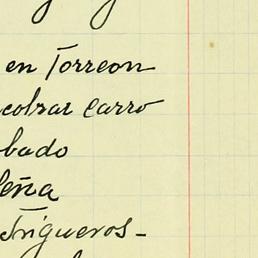 en Torreon
cobrar carro
bado
leña
drigueros-